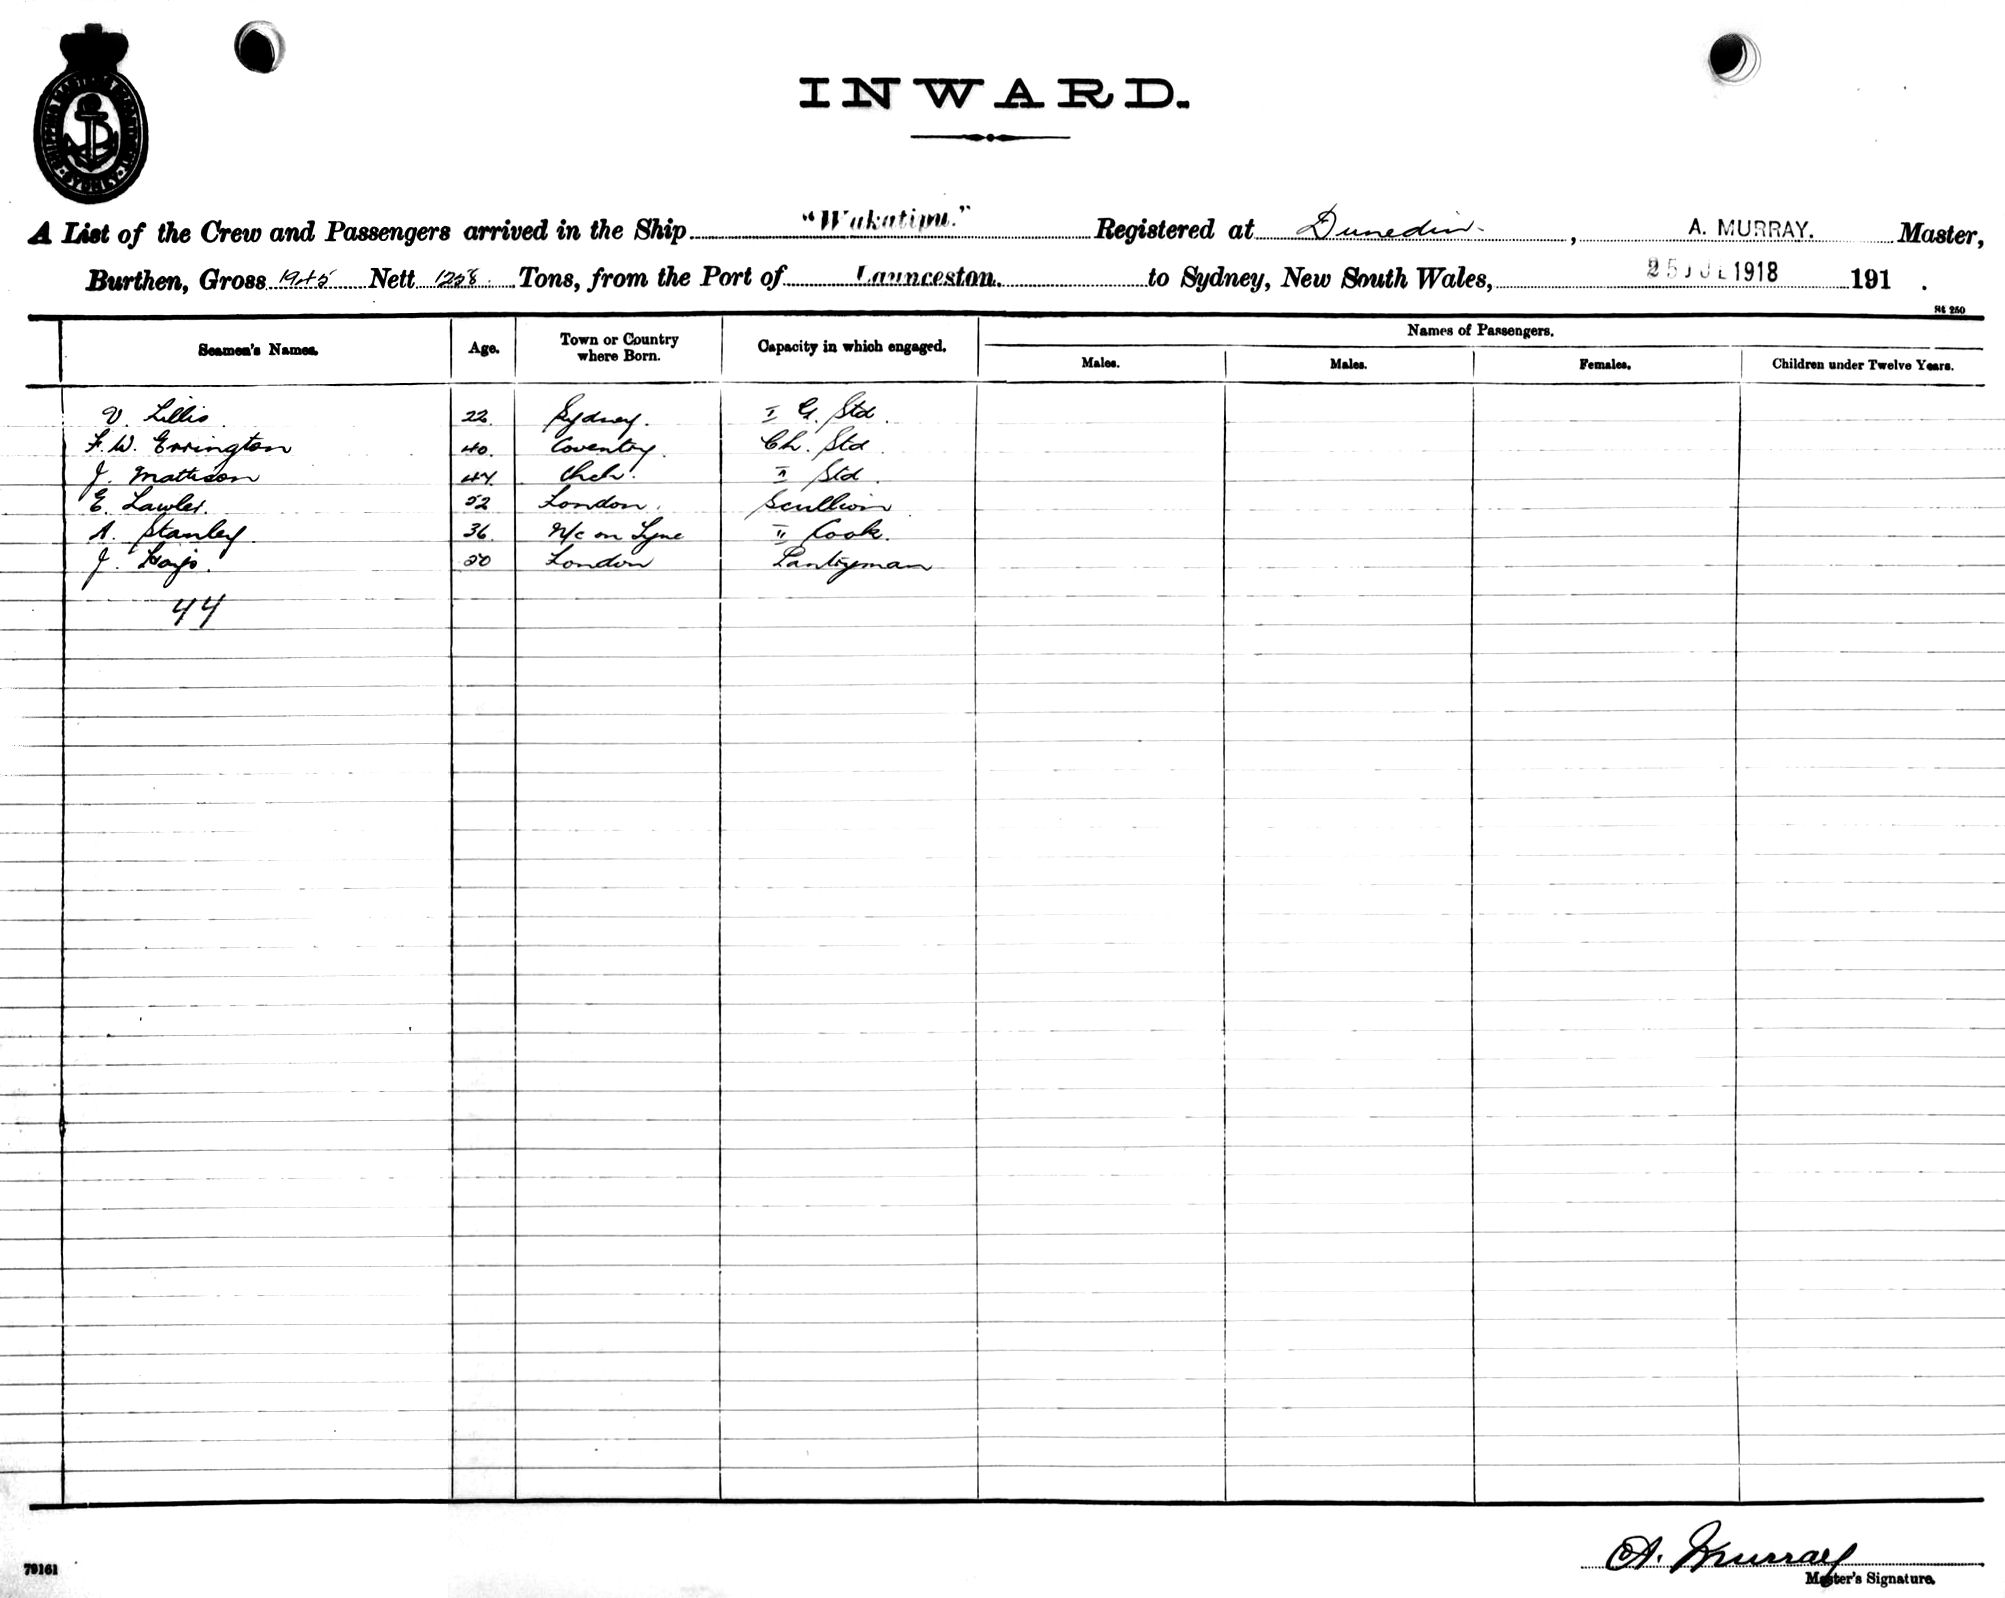 SHIPPING MASTER'S DEPARTMENT
SYDNEY
INWARD.
A List of the Crew and Passengers arrived in the Ship "Wakatipu." Registered at Dunedin, A. MURRAY. Master,
Burthen, Gross 1945 Nett 1258 Tons, from the Port of Launceston. to Sydney, New South Wales, 25 JUL 1918 191 .
St 250
Seamen's Names. Age. Town or Country where Born. Capacity in which engaged. Names of Passengers.
Males. Males. Females. Children under Twelve Years.
V. Lillis 22. Sydney. I G. Std.
F. W. Errington 40. Coventry. Ch. Std.
J. Mattison 47. Chch. II Std.
E. Lawler. 52 London. Scullion
A. Stanley. 36 N/c on Tyne II Cook.
J. 50 London Pantryman
44
A. Murray
Master's Signature.
79161